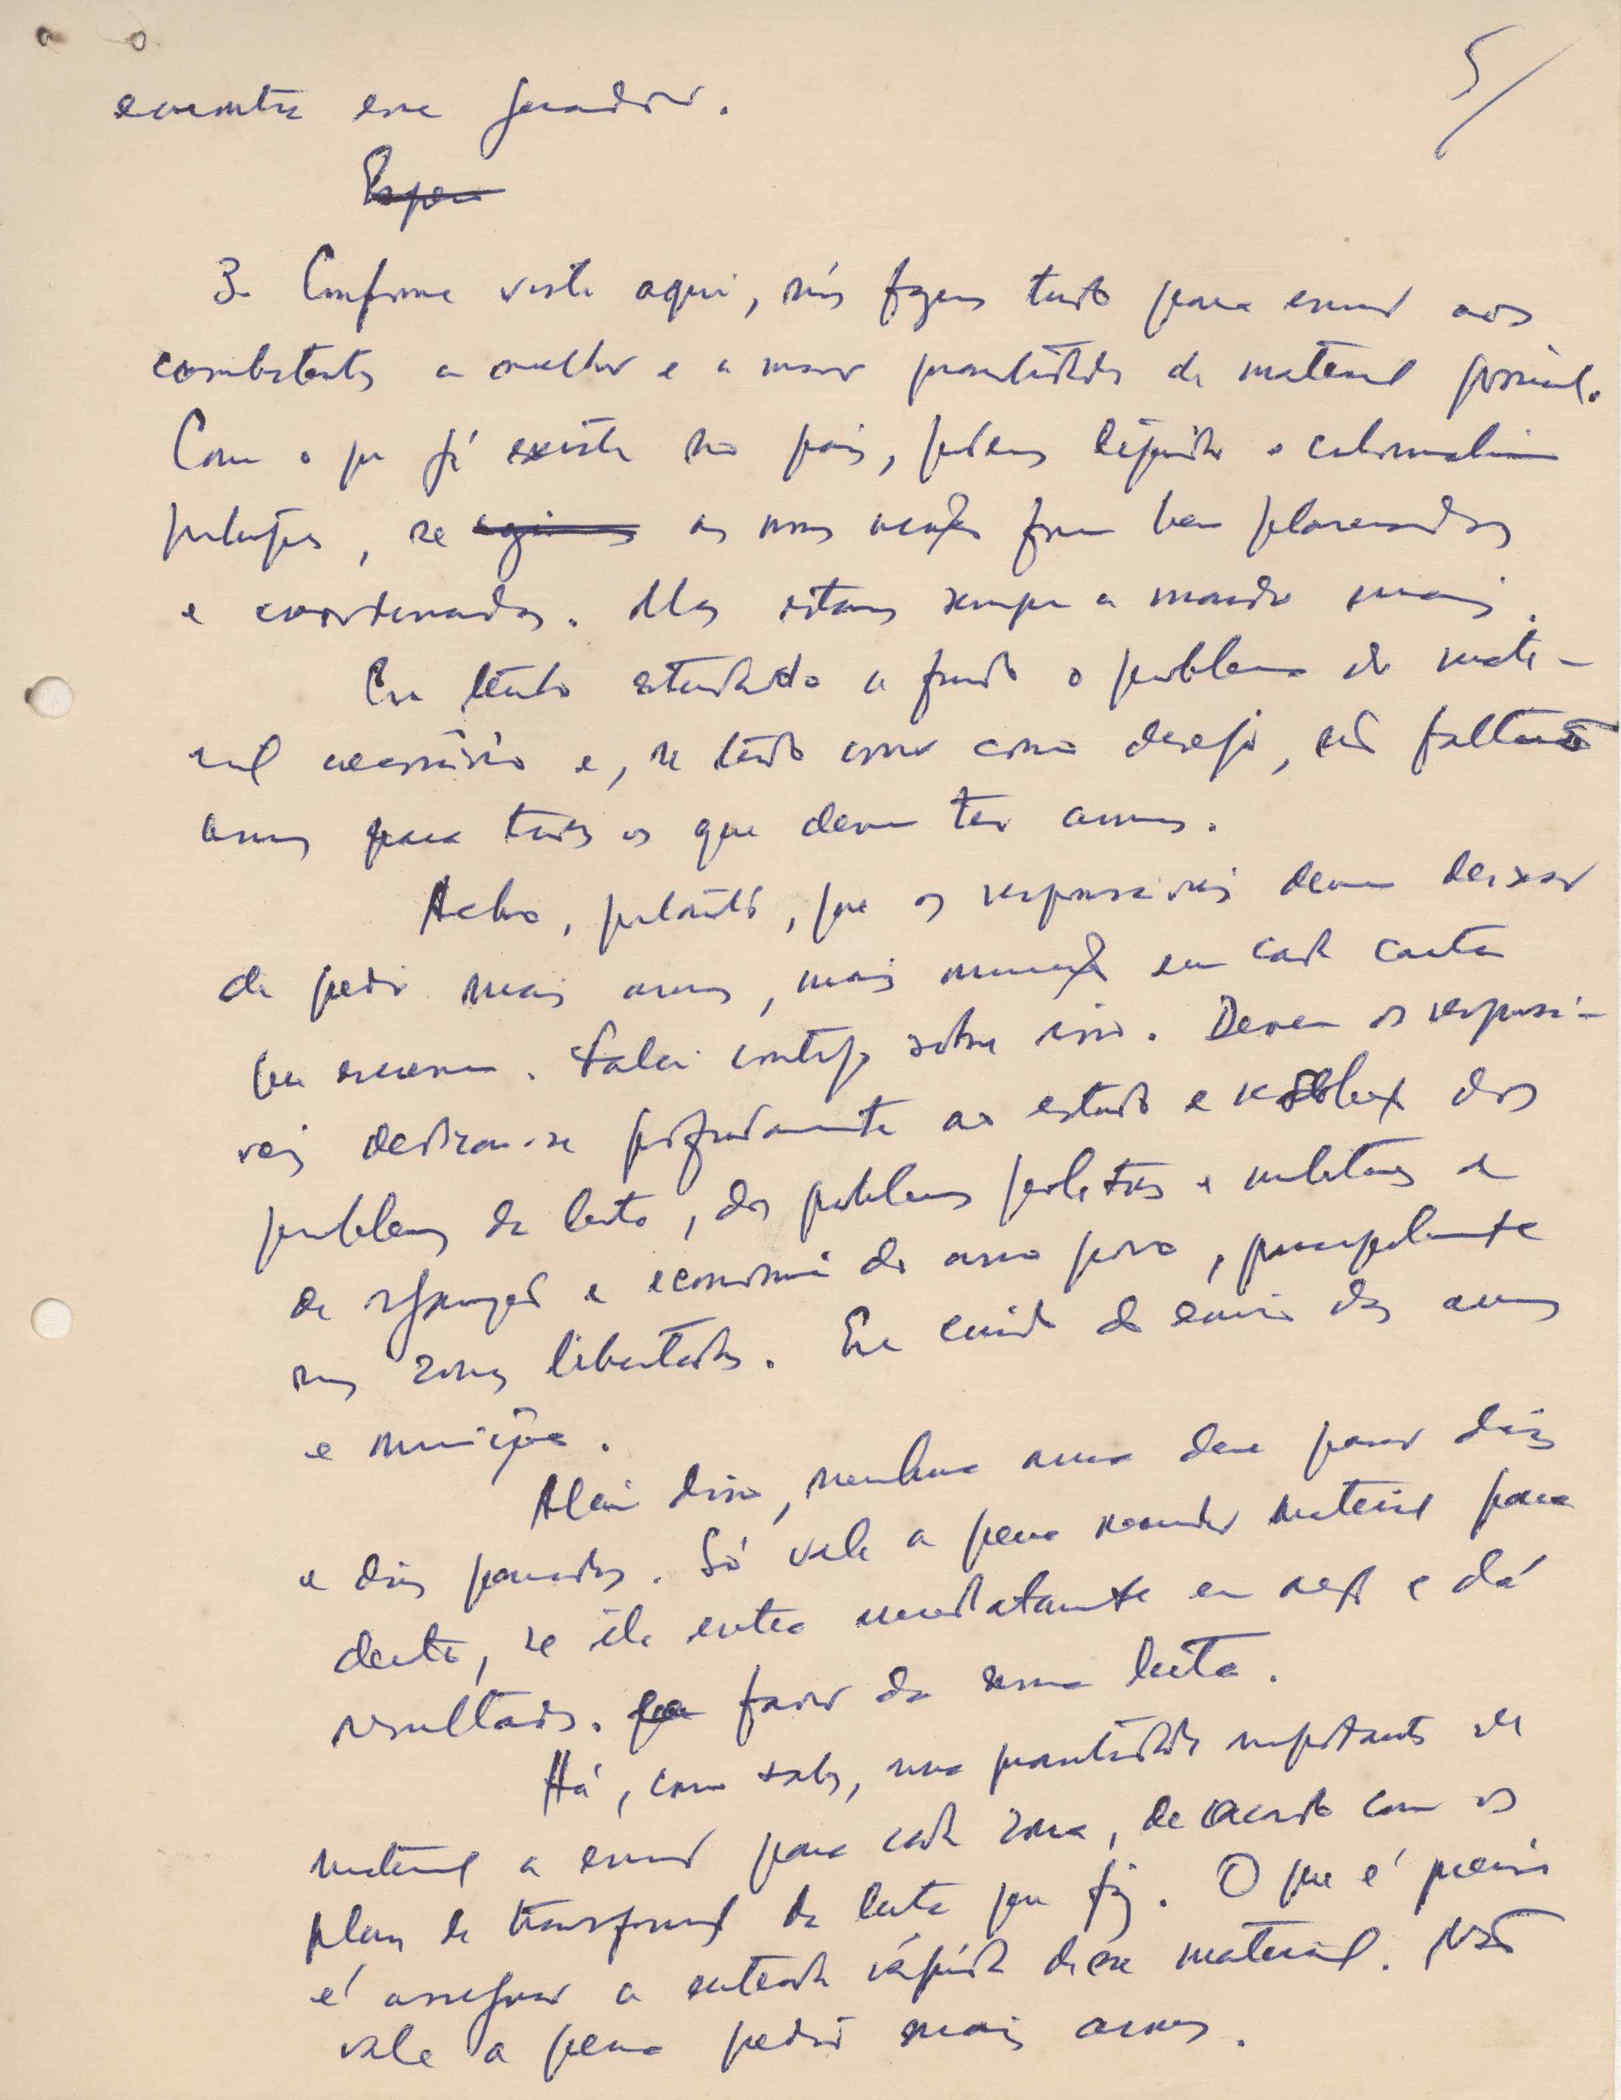 5/
encontra esse
3. Conforme viste aqui, nós fazemos tudo para enviar aos
combatentes a melhor e a maior quantidade de material possível.
Com o que já existe no país, podemos liquidar o colonialismo
português, se as nossas acções forem bem planeadas
e coordenadas. Mas estamos sempre a mandar mais.
Eu tenho estudado a fundo o problema do mate-
rial necessário e, se tudo correr como desejo, não faltarão
armas para todos os que devem ter armas.
Acho, portanto, que os responsáveis devem deixar
de pedir mais armas, mais munições em cada carta
que escrevem. Falei contigo sobre isso. Devem os responsá-
veis dedicar-se profundamente ao estudo e resolução dos
problemas da luta, dos problemas políticos e militares e
de segurança e economia do nosso povo, principalmente
nas zonas libertadas. Eu cuido do envio das armas
e munições.
Além disso, nenhuma arma deve passar dias
e dias parados. Só vale a pena mandar material para
dentro, se ele entra imediatamente em acção e dá
resultados. favor da nossa luta.
Há, como sabes, uma quantidade importante de
material a enviar para cada zona, de acordo com os
planos de transformação da luta que fiz. O que é preciso
é assegurar a entrada rápida desse material. Não
vale a pena pedir mais armas.